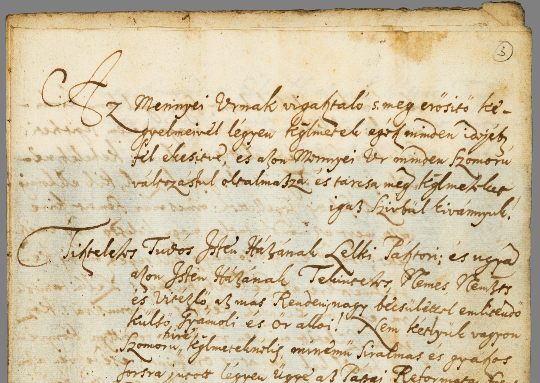 5
Az Mennyei Urnak vigasztaló s meg erősitő ke-
gyelmeivel légyen kglmetek egész minden idejek
fel ékesitve, és azon Mennyei Ur minden szomorú
változástul oltalmazza, és tarcsa meg kglmeteket
igaz szivbül kivánnyuk.
Tiszteletes Tudos Isten Házának Lelki Pásztori; és ugyan
azon Isten Házának Tekintetes, Nemes Nemzetes
és Vitézlő, az mas Renden, nagy böcsülettel emlitendő
külső Gyámoli és Őr alloi! Nem kétlyük vagyon
szomorú hire kglmeteknél is minémü siralmas és gyászos
sorsra jutott légyen ügye az Pápai Reformata